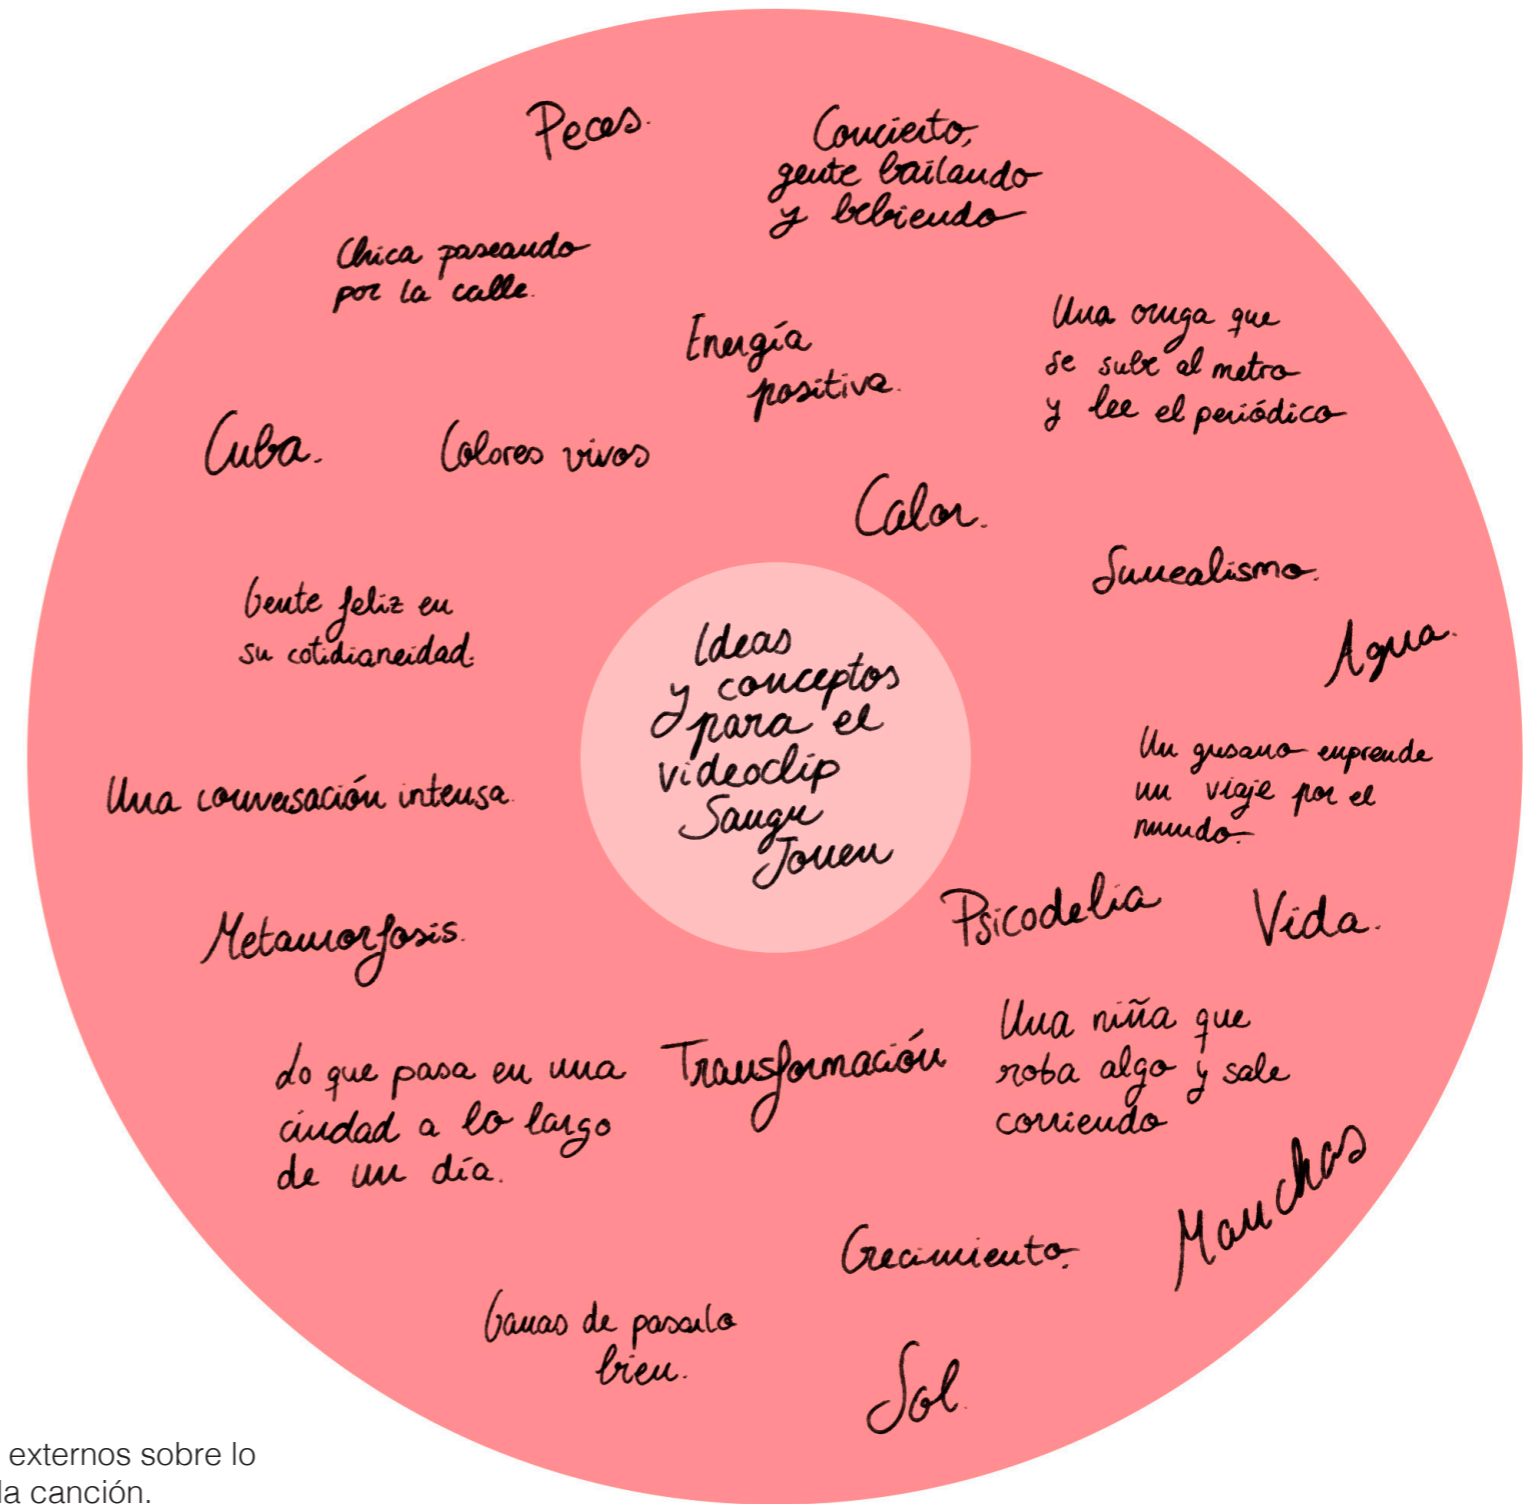 Peces.
Concierto,
gente bailando
y bebiendo
Chica paseando
por la calle.
Energía
positiva.
Una oruga que
se sube al metro
y lee el periódico
Cuba.
Colores vivos
Calor.
Surrealismo.
Gente feliz en
su cotidianeidad.
Agua.
Ideas
y conceptos
para el
videoclip
Sangre
Joven
Una conversación intensa.
Un gusano emprende
un viaje por el
mundo.
Metamorfosis.
Psicodelia
Vida.
Lo que pasa en una
ciudad a lo largo
de un día.
Transformación
Una niña que
roba algo y sale
corriendo
Manchas
Crecimiento.
Ganas de pasarlo
bien.
Sol.
externos sobre lo
la canción.